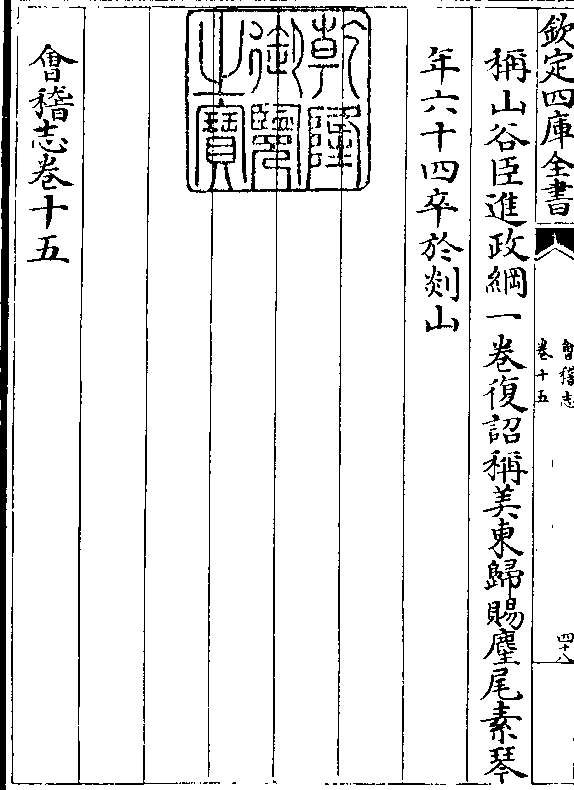 欽定四庫全書
會稽志
卷十五
四十八
稱山谷臣進政綱一卷復詔稱美東歸賜麈尾素琴
年六十四卒於剡山
乾隆
御覽
之寶
會稽志卷十五